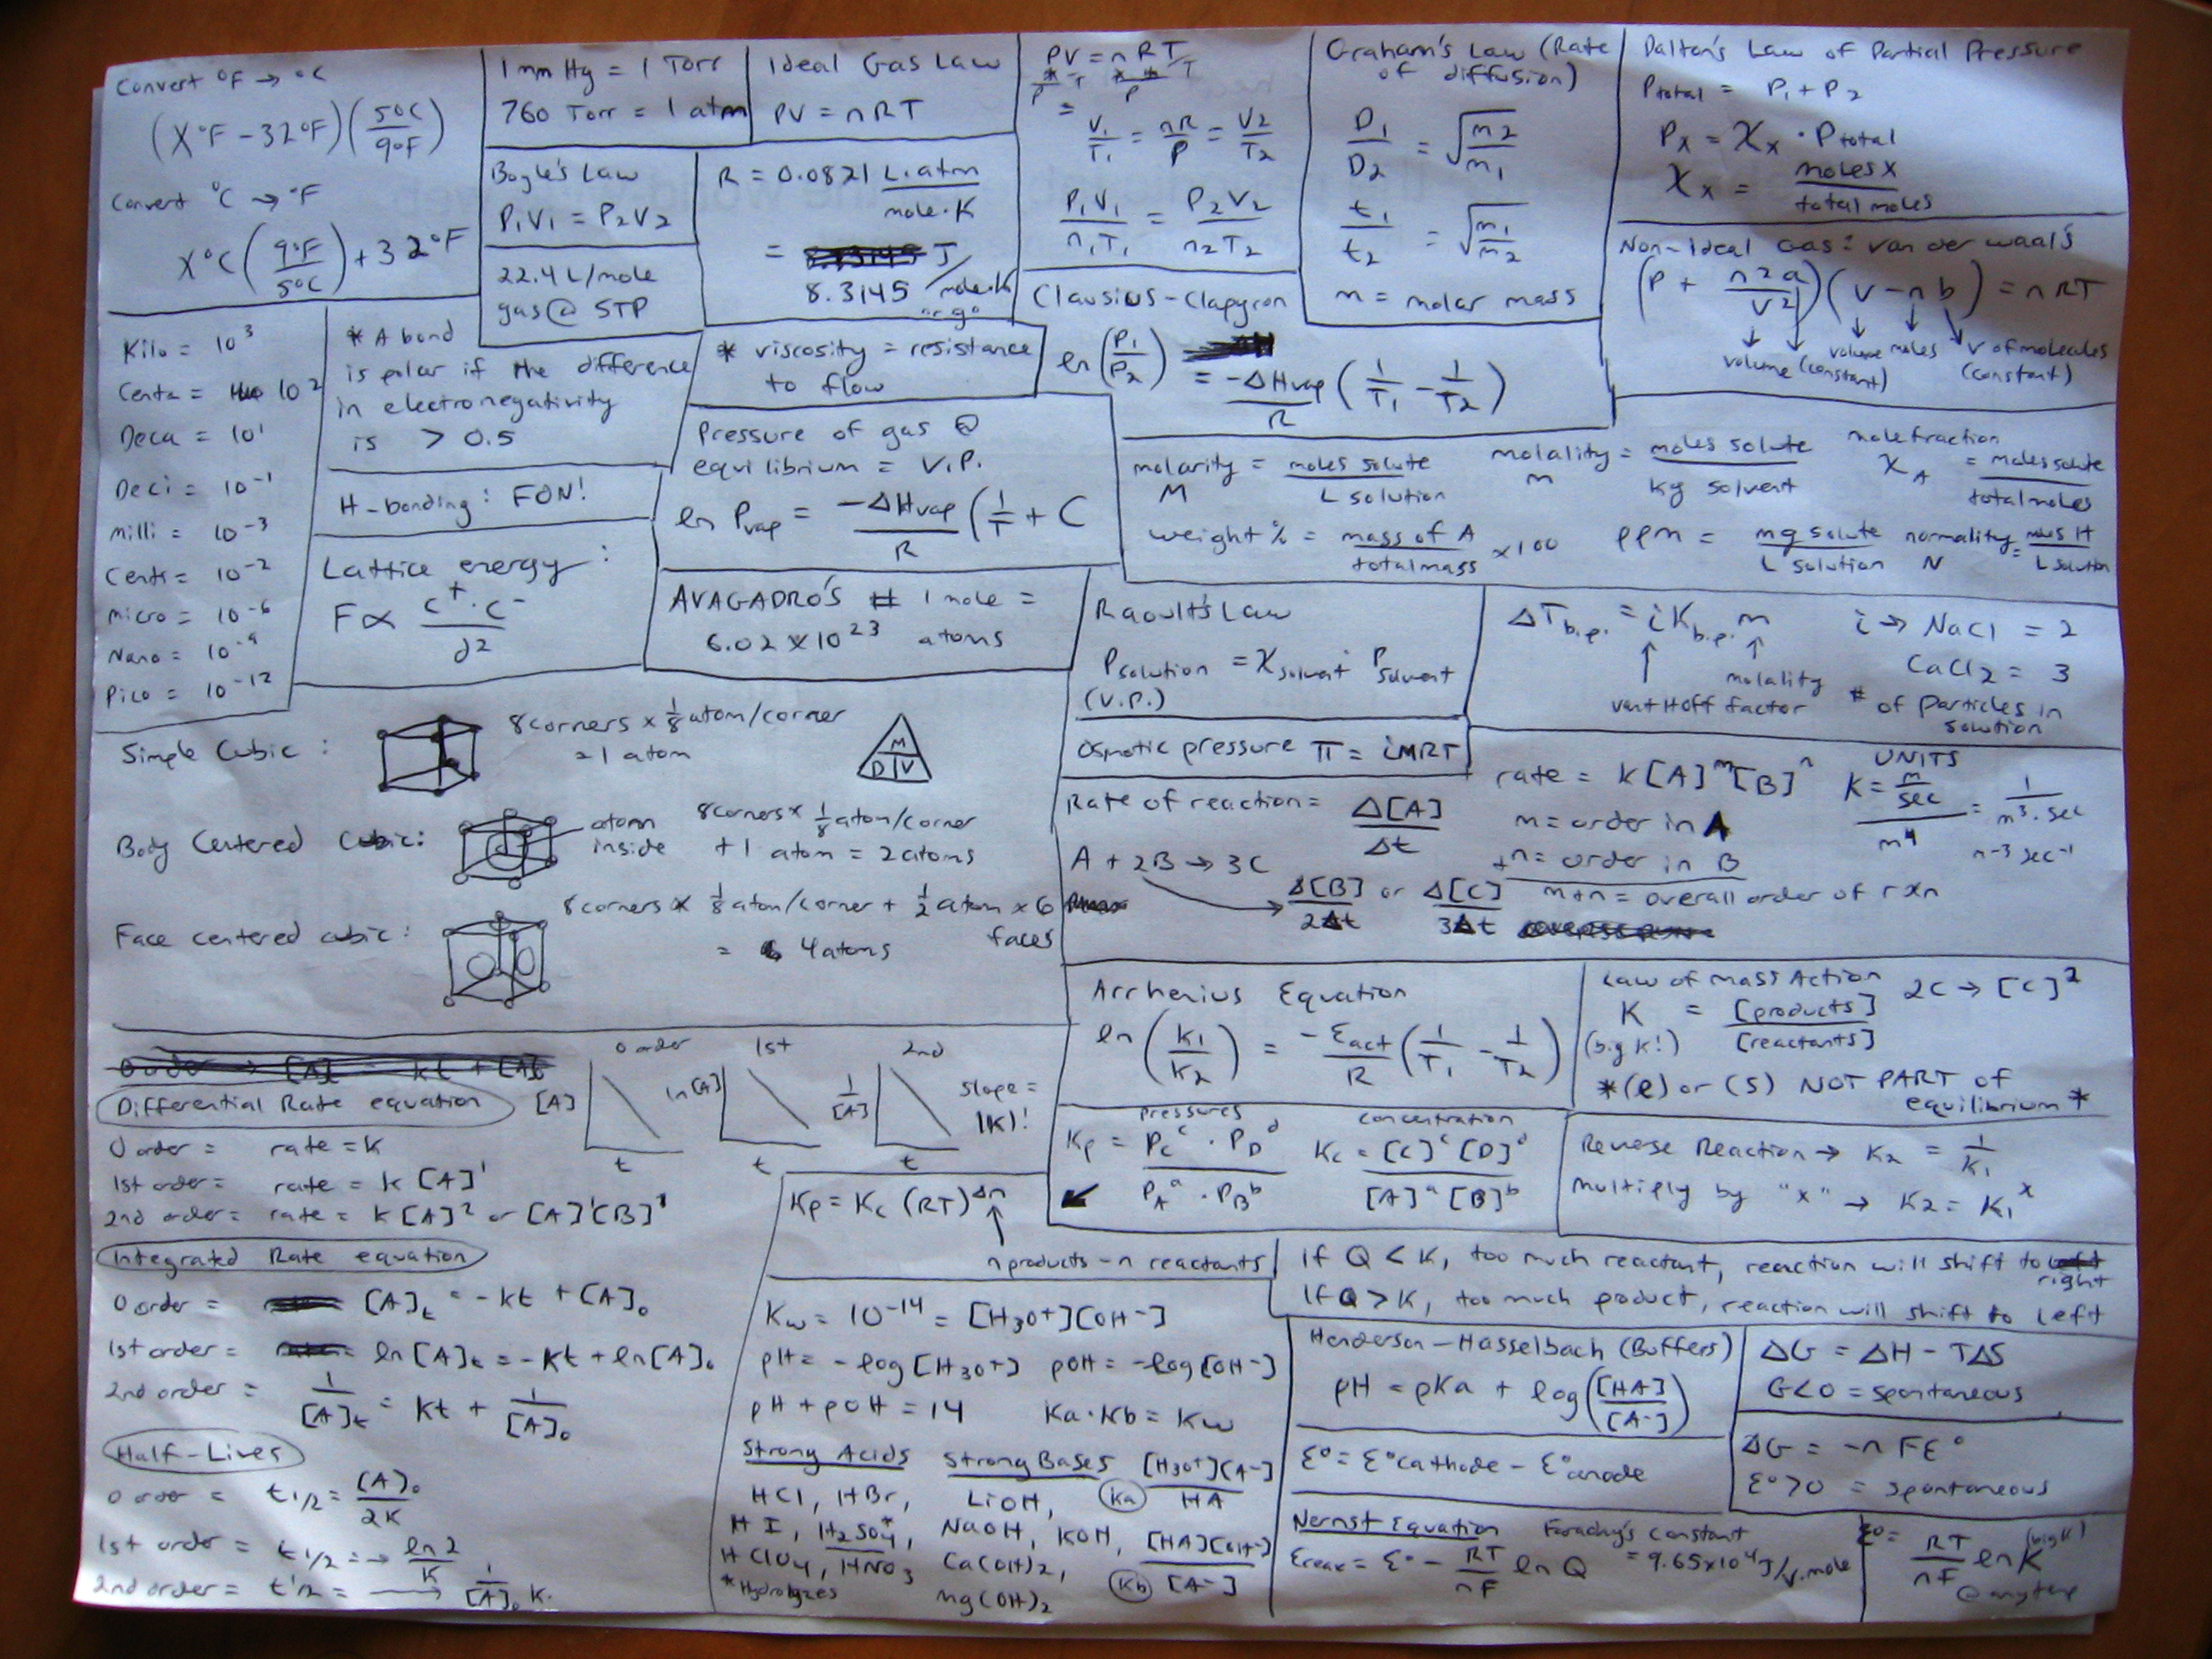 Convert °F → °C
(X°F - 32°F)(5°C/9°F)
Convert °C → °F
X°C(9°F/5°C) + 32°F
1 mm Hg = 1 Torr
760 Torr = 1 atm
Ideal Gas Law
PV = nRT
Boyle's Law
P₁V₁ = P₂V₂
22.4 L/mole
gas @ STP
R = 0.0821 L·atm/mole·K
= 8.3145 J/mole·K
PV = nRT
V₁/T₁ = nR/P = V₂/T₂
P₁V₁/n₁T₁ = P₂V₂/n₂T₂
Graham's Law (Rate
of diffusion)
D₁/D₂ = √(m₂/m₁)
t₁/t₂ = √(m₁/m₂)
m = molar mass
Dalton's Law of Partial Pressure
Ptotal = P₁ + P₂
Pₓ = Xₓ · Ptotal
Xₓ = moles x/total moles
Non-ideal Gas: van der waal's
(P + n²a/V²)(V - nb) = nRT
volume (constant) volume moles V of molecules
(constant)
Kilo = 10³
Centa = 10²
Deca = 10¹
Deci = 10⁻¹
Milli = 10⁻³
Centi = 10⁻²
Micro = 10⁻⁶
Nano = 10⁻⁹
Pico = 10⁻¹²
* A bond
is polar if the difference
in electronegativity
is > 0.5
H-bonding: FON!
Lattice energy:
F ∝ c⁺·c⁻/d²
* viscosity = resistance
to flow
Pressure of gas @
equilibrium = V.P.
ln Pvap = -ΔHvap/R (1/T + C
AVAGADRO'S # 1 mole =
6.02 x 10²³ atoms
Clausius-Clapyron
ln(P₁/P₂) = -ΔHvap/R (1/T₁ - 1/T₂)
molarity M = moles solute/L solution
molality m = moles solute/kg solvent
mole fraction X_A = moles solute/total moles
weight % = mass of A/total mass x100
ppm = mg solute/L solution
normality N = moles H/L solution
Raoult's Law
Psolution = Xsolvent · Psolvent
(V.P.)
Osmotic pressure π = iMRT
ΔTb.p. = iKb.p. m
molality
vant Hoff factor
i → NaCl = 2
CaCl₂ = 3
# of particles in
solution
Simple Cubic:
8 corners x 1/8 atom/corner
= 1 atom
M
D V
Body Centered Cubic:
atom
inside
8 corners x 1/8 atom/corner
+ 1 atom = 2 atoms
Face centered cubic:
8 corners x 1/8 atom/corner + 1/2 atom x 6
faces
= 4 atoms
Rate of reaction = Δ[A]/Δt
A + 2B → 3C
Δ[B]/2Δt or Δ[C]/3Δt
rate = k[A]ᵐ[B]ⁿ
m = order in A
+n = order in B
m+n = overall order of rxn
UNITS
K = m/sec/m⁴ = 1/m³·sec
m⁻³ sec⁻¹
Arrhenius Equation
ln(k₁/k₂) = -Eact/R (1/T₁ - 1/T₂)
Law of mass Action
K = [products]/[reactants]
(big K!)
2C → [C]²
*(l) or (s) NOT PART of
equilibrium *
Differential Rate equation
0 order = rate = k
1st order = rate = k [A]¹
2nd order = rate = k[A]² or [A]¹[B]¹
0 order
[A]
t
1st
ln[A]
t
2nd
1/[A]
t
slope =
|K|!
Integrated Rate equation
0 order = [A]t = -kt + [A]₀
1st order = ln[A]t = -kt + ln[A]₀
2nd order = 1/[A]t = kt + 1/[A]₀
Half-Lives
0 order = t1/2 = [A]₀/2K
1st order = t1/2 = → ln2/K
2nd order = t1/2 = → 1/[A]₀K
pressures
Kp = Pcᶜ · P_Dᵈ / P_Aᵃ · P_Bᵇ
concentration
Kc = [C]ᶜ[D]ᵈ / [A]ᵃ[B]ᵇ
Reverse Reaction → K₂ = 1/K₁
Multiply by "x" → K₂ = K₁ˣ
Kp = Kc (RT)^Δn
n products - n reactants
If Q < K, too much reactant, reaction will shift to right
If Q > K, too much product, reaction will shift to left
Kw = 10⁻¹⁴ = [H₃O+][OH-]
pH = -log[H₃O+] pOH = -log[OH-]
pH + pOH = 14 Ka·Kb = Kw
Strong Acids
HCl, HBr,
HI, H₂SO₄*,
HClO₄, HNO₃
*Hydrolyzes
Strong Bases
LiOH,
NaOH, KOH,
Ca(OH)₂,
Mg(OH)₂
[H₃O+][A-]/HA
Ka
[HA][OH-]/[A-]
Kb
Henderson-Hasselbach (Buffers)
pH = pKa + log([HA]/[A-])
ΔG = ΔH - TΔS
G<0 = spontaneous
Ɛ° = Ɛ°cathode - Ɛ°anode
ΔG = -nFƐ°
Ɛ°>0 = spontaneous
Nernst Equation
Ɛ = Ɛ° - RT/nF ln Q
Faraday's constant
= 9.65x10⁴ J/V·mole
Ɛ° = RT/nF ln K (big K)
@ any temp